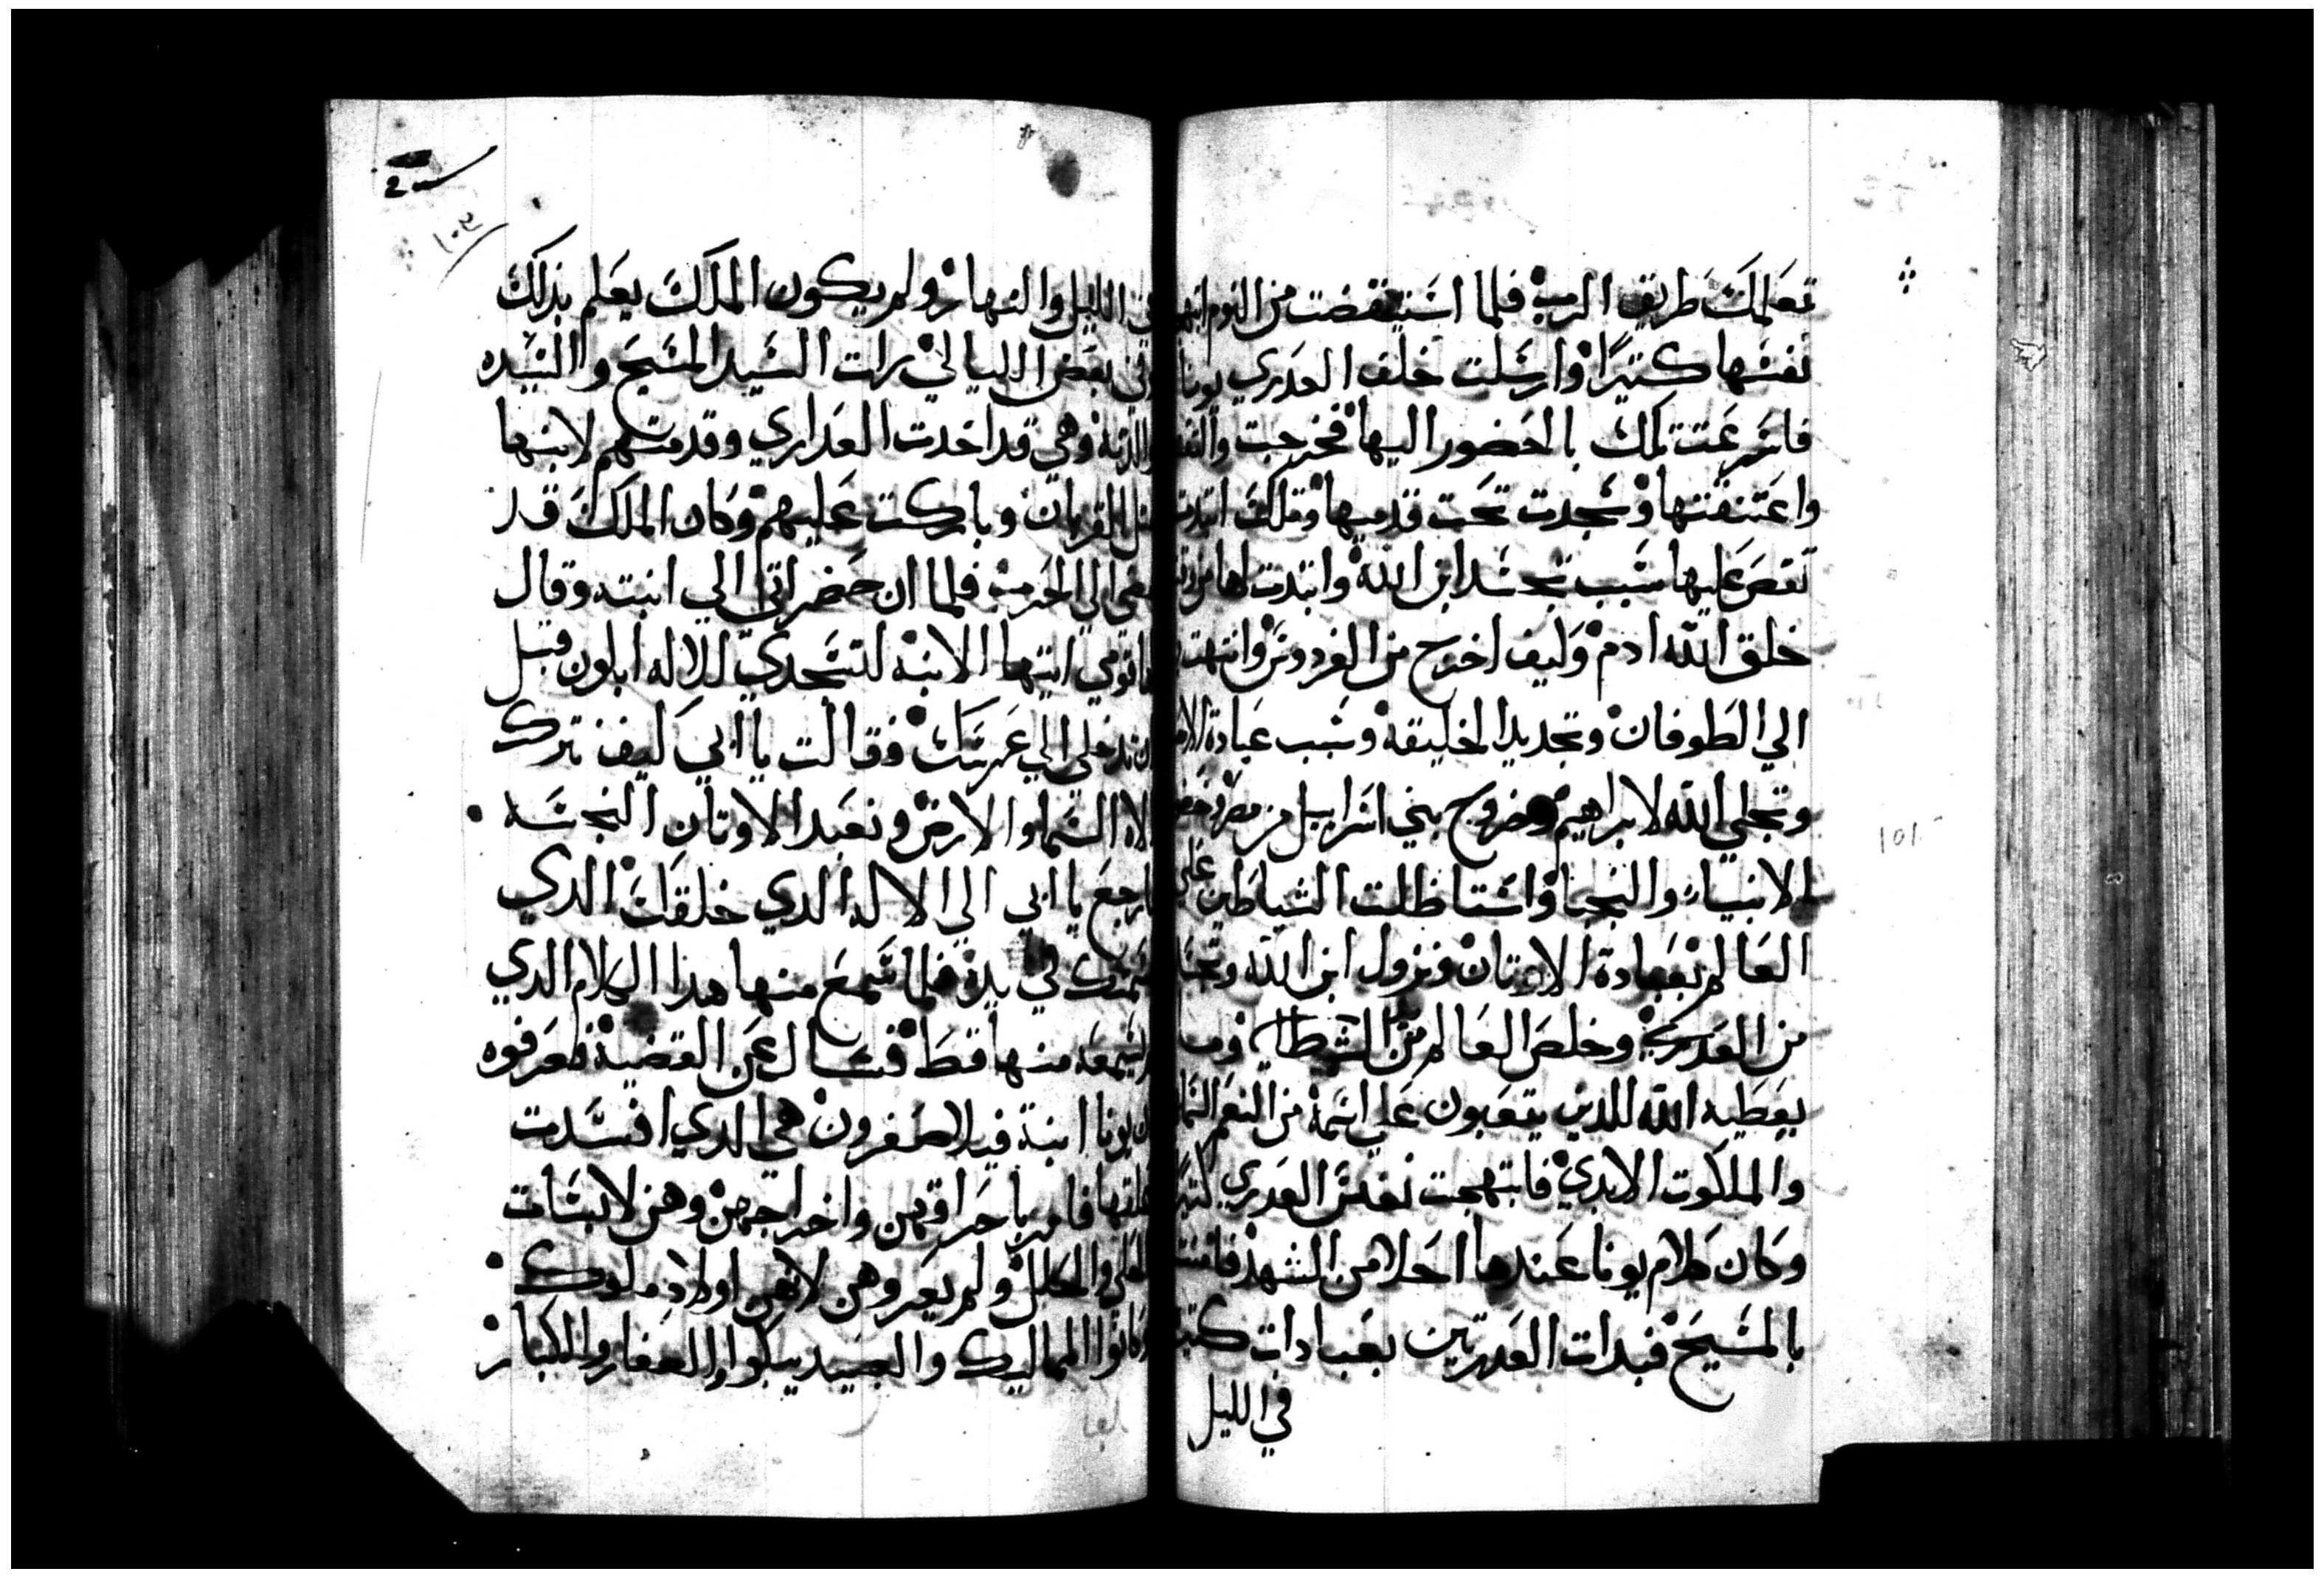 تعلمك طريق الرب فلما استيقضت من النوم
نفسها كتيرًا وارسلت خلف العدري يونا
فاسرعت تلك بالحضور اليها فخرجت
واعتنقتها وسجدت تحت قدميها وتلك ابتدت
تقص عليها سبب تجسد ابن الله وابتدت لها من
خلق الله ادم وكيف اخرج من الفردوس وانتهت
الي الطوفان وتجديد الخليقه وسبب عبادة
وتجلي الله لابراهيم وخروج بني اسراييل من مصر
الانبياء والنجبا واستاظلت الشياطين علي
العالم بعبادة الاوتان ونزول ابن الله
من العدري وخلص العالم من
يعطيه الله للدين يتعبون علي اسمه من النعم
والملكوت الابدي فابتهجت نفس العدري
وكان كلام يونا عندها احلا من الشهد فامنت
بالمسيح فبدات العدرتين بعبادات
في الليل
١٥١
١٠٢
في الليل والنهار ولم يكون الملك يعلم بذلك
وفي بعض الليالي رات السيد المسيح والسيده
والدته وهي قد اخدت العداري وقدمتهم لابنها
مثل القربان وباركت عليهم وكان الملك قد
مضي الي الحرب فلما ان حضر اتي الي ابنته وقال
لها قومي ايتها الابنه لتسجدي للاله ابلون قبل
ان تدخلي الي عرسك فقالت يا ابي كيف نترك
الاه السما والارض ونعبد الاوتان النجسه
ارجع يا ابي الي الاله الدي خلقك الدي
نسمتك في يده فلما سمع منها هدا الكلام الدي
لم يسمعه منها قط فسال عن القضية فعرفوه
ان يونا ابنة فيلاصفرون هي الدي افسدت
عقلها فامر باحراقهن واخراجهن وهن لابسات
الحلي والحلل ولم يعروهن لانهن اولاد ملوك
وكانوا المماليك والعبيد يبكوا والصغار والكبار